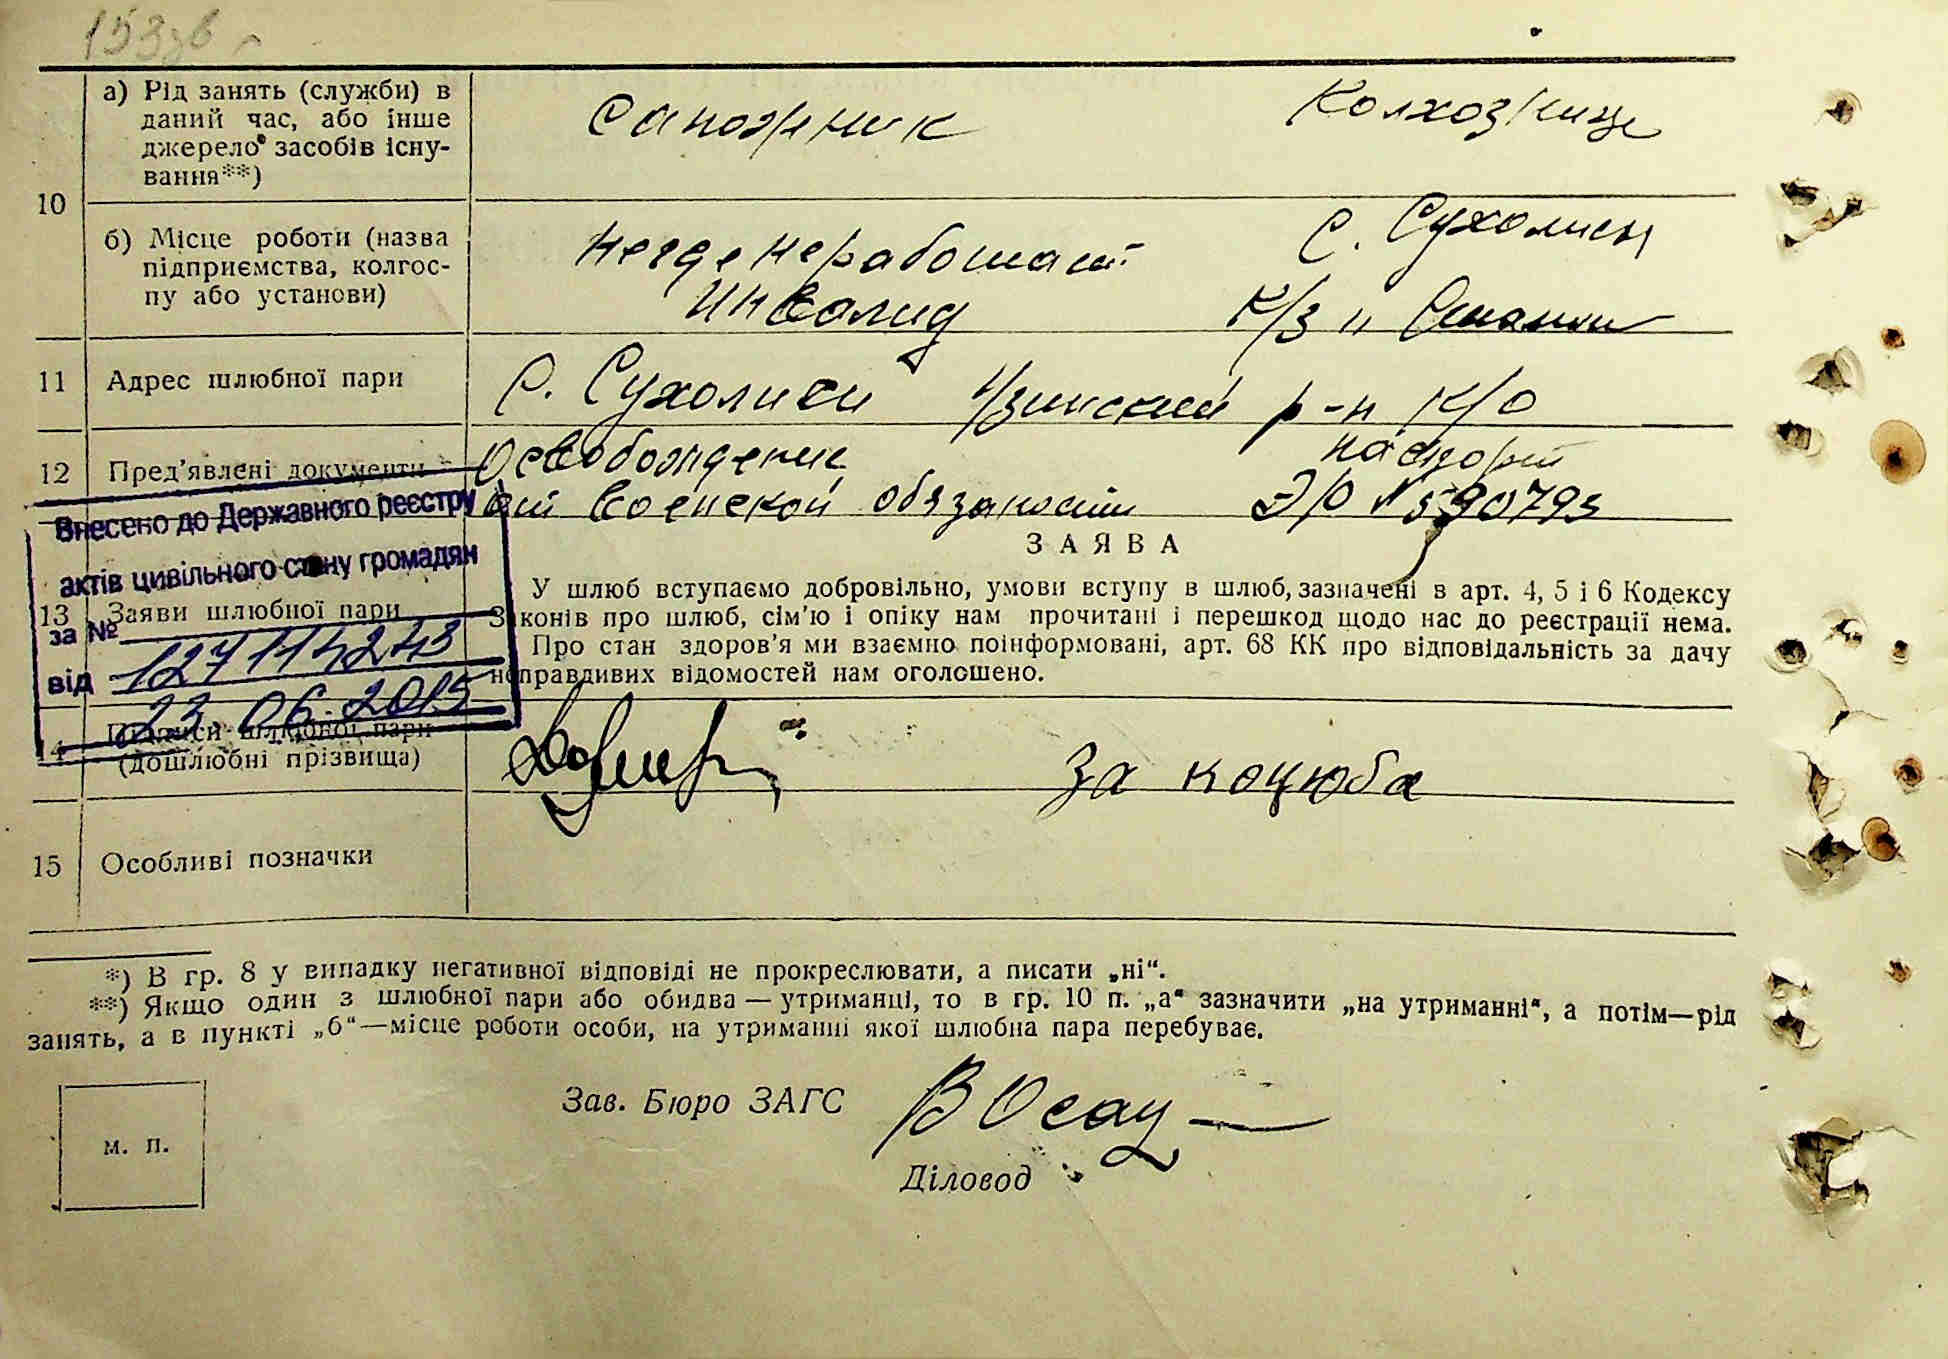 153зв
а) Рід занять (служби) в
даний час, або інше
джерело засобів існу-
вання**)
Сапожник
Колхозница
10
б) Місце роботи (назва
підприємства, колгос-
пу або установи)
Негде не работает
Инвалид
С. Сухолисы
К/з и
11
Адрес шлюбної пари
С. Сухолиси Узинский р-н К/О
12
Пред’явлені документи
Освобождение
от военской обязаности
паспорт
Э/О № 590793
Внесено до Державного реєстру
актів цивільного стану громадян
за №
127114243
від
23.06.2015
13
Заяви шлюбної пари
ЗАЯВА
У шлюб вступаємо добровільно, умови вступу в шлюб, зазначені в арт. 4, 5 і 6 Кодексу
Законів про шлюб, сім’ю і опіку нам прочитані і перешкод щодо нас до реєстрації нема.
Про стан здоров’я ми взаємно поінформовані, арт. 68 КК про відповідальність за дачу
неправдивих відомостей нам оголошено.
14
Підписи шлюбної пари
(дошлюбні прізвища)
За коцюба
15
Особливі позначки
*) В гр. 8 у випадку негативної відповіді не прокреслювати, а писати „ні“.
**) Якщо один з шлюбної пари або обидва — утриманці, то в гр. 10 п. „а“ зазначити „на утриманні“, а потім—рід
занять, а в пункті „б“—місце роботи особи, на утриманні якої шлюбна пара перебуває.
Зав. Бюро ЗАГС
м. п.
Діловод